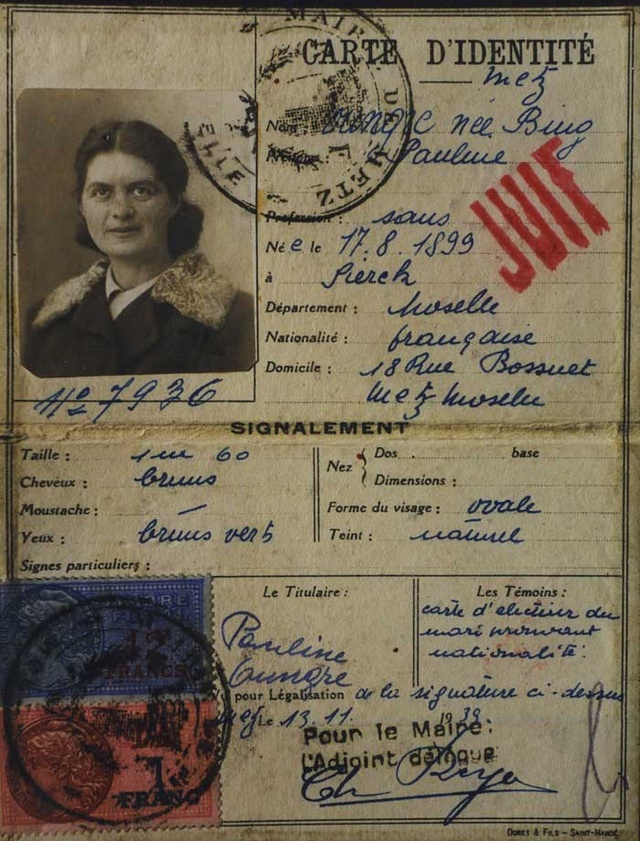 CARTE D'IDENTITÉ
Metz
MAIRIE DE METZ
née Bing
Pauline
JUIF
Profession : sans
Née le 17.8.1899
à Sierck
Département : Moselle
Nationalité : française
Domicile : 18 Rue Bossuet
Metz Moselle
No 7936
SIGNALEMENT
Taille : 1 m 60
Cheveux : bruns
Moustache : -
Yeux : bruns verts
Signes particuliers :
Nez Dos base
Dimensions :
Forme du visage : ovale
Teint : naturel
Le Titulaire :
Pauline
Les Témoins :
carte d'électeur du
mari prouvant
nationalité.
12
FRANCS
1
FRANC
pour Légalisation de la signature ci-dessus
le 13.11. 1939
Pour le Maire:
l'Adjoint délégué
DORET & FILS – SAINT-MANDÉ